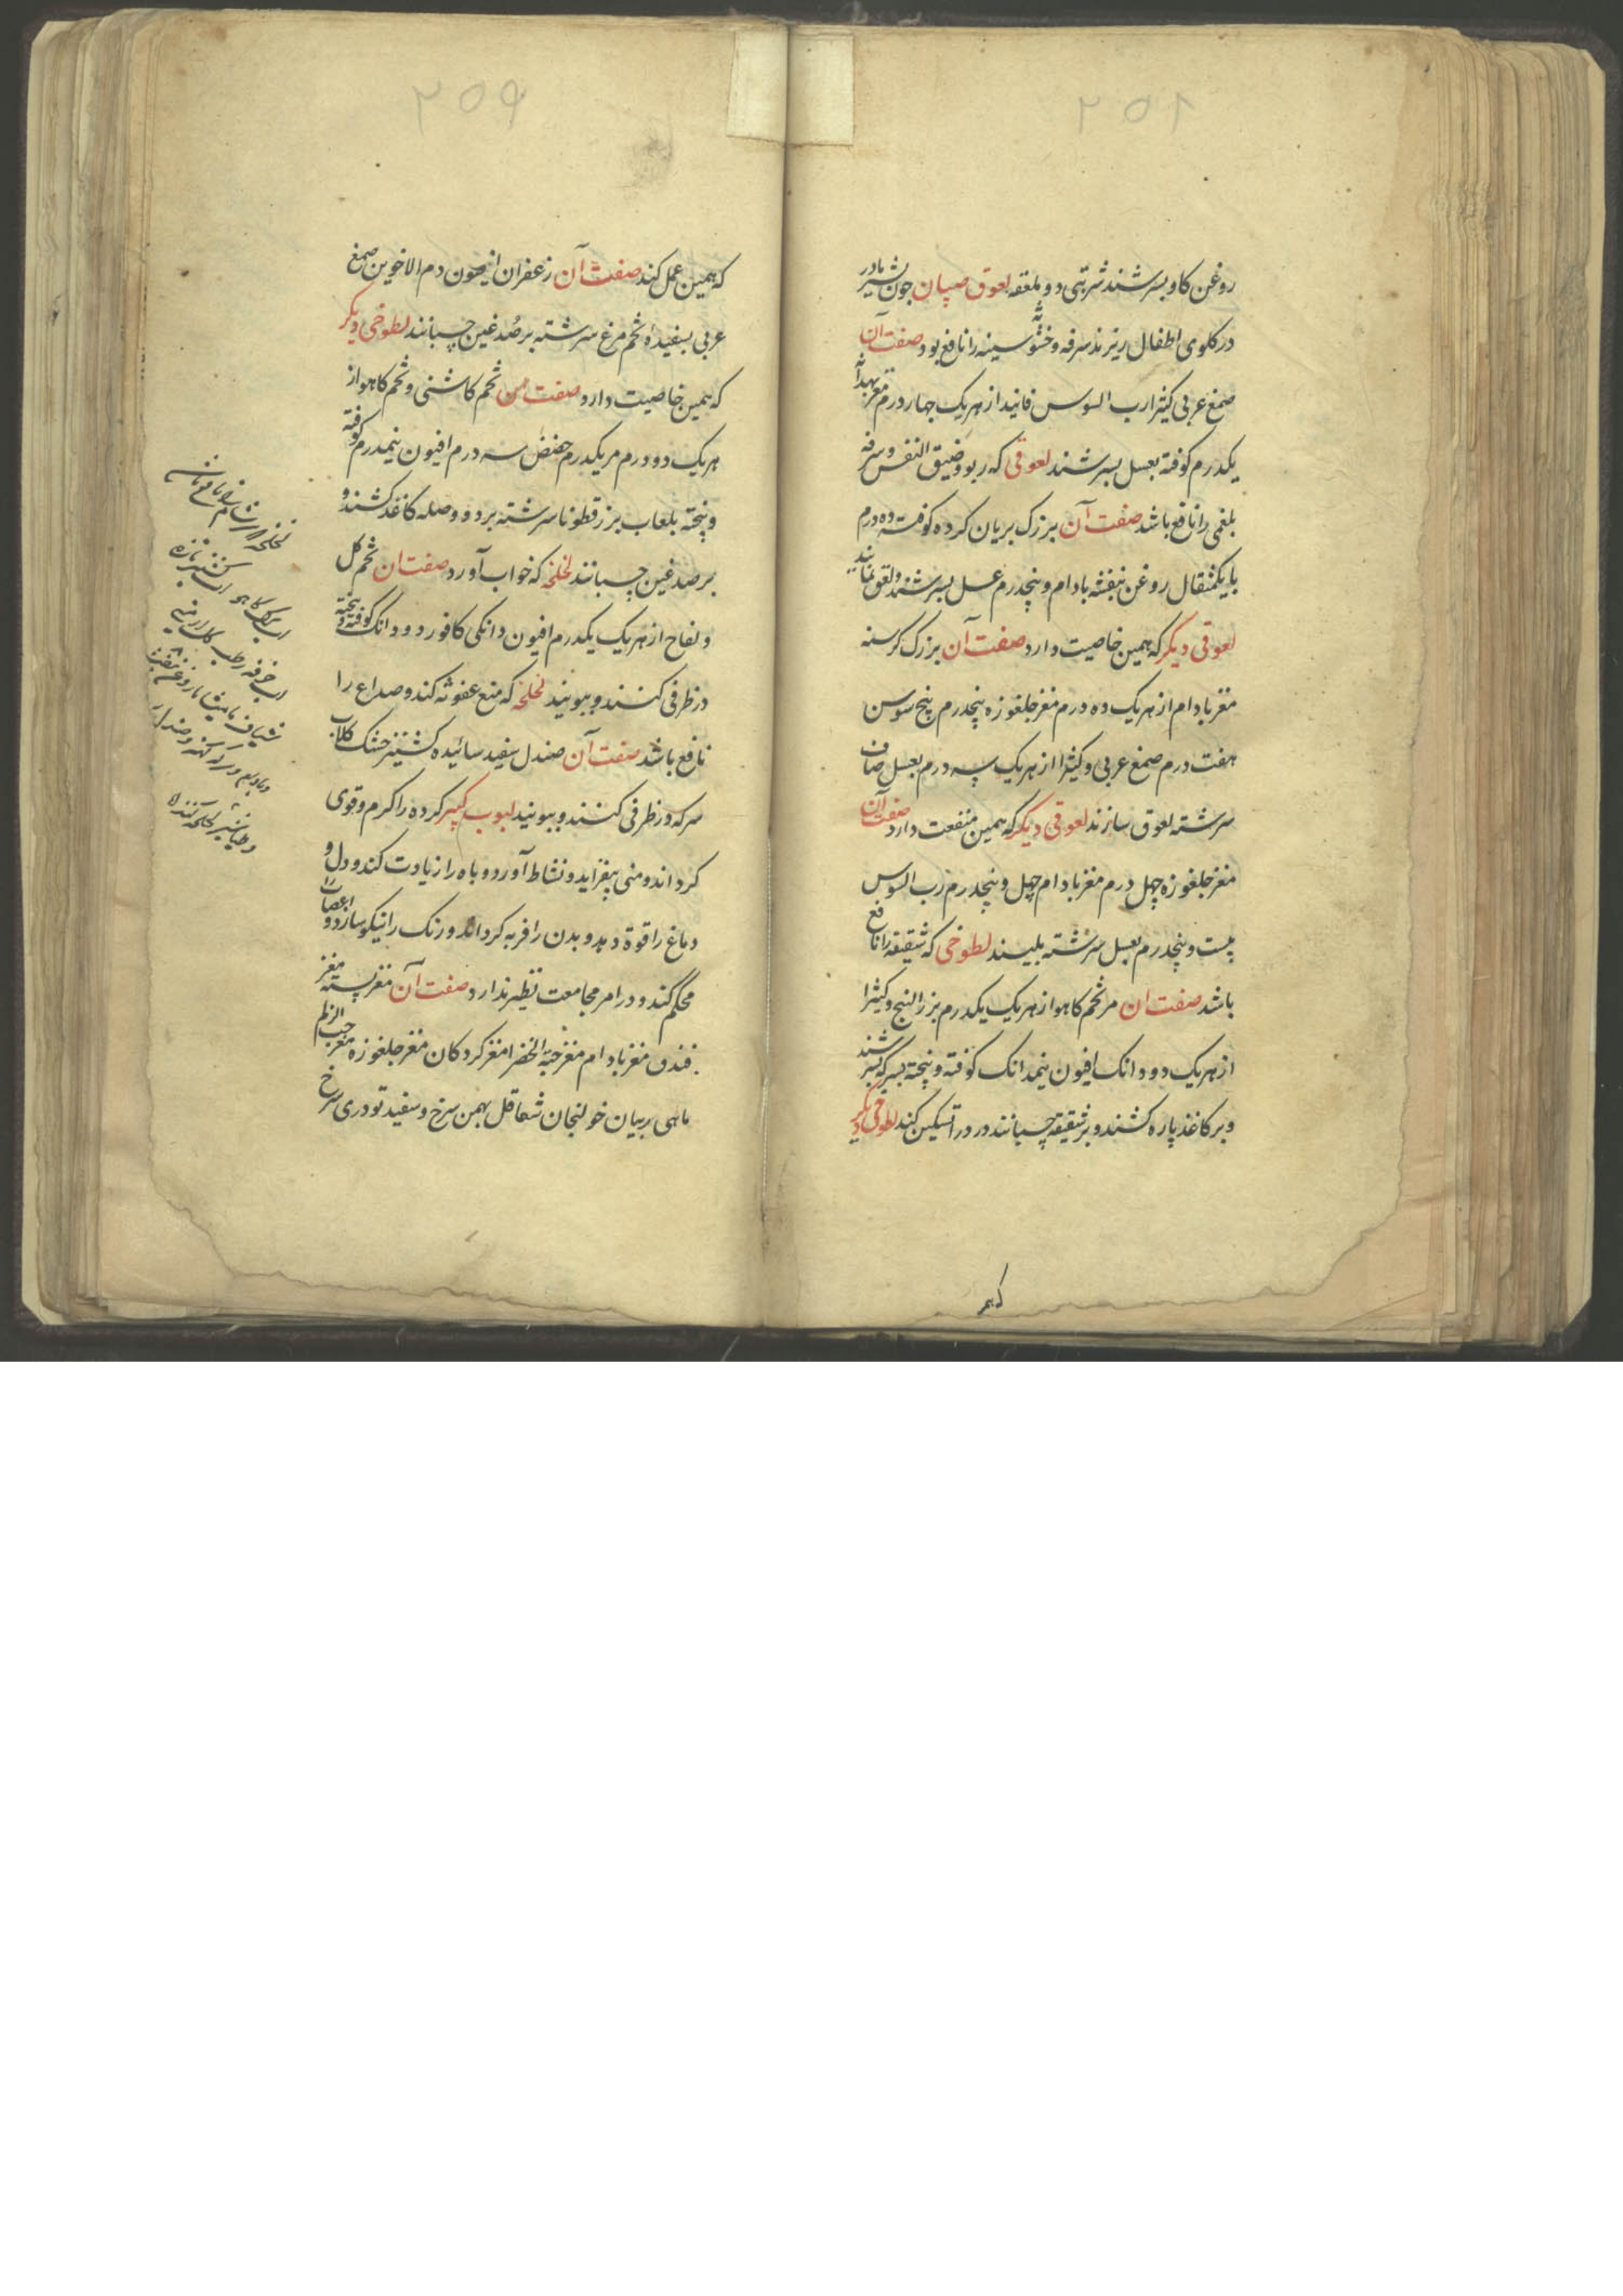 ۲۵۸
روغن کاو بسرشند شربتی دو ملعقه لعوق صبیان جون بشیر مادر
در کلوی اطفال ریزند سرفه و خشونة سینه را نافع بود صفت آن
صمغ عربی کثیرا رب السوس فانید از هریک چهار درم مغز بهدانه
یکدرم کوفته بعسل بسرشند لعوقی که ربو و ضیق النفس و سرفه
بلغمی را نافع باشد صفت آن بزرک بریان کرده کوفته ده درم
با یکمثقال روغن بنفشه بادام و پنجدرم عسل بسرشند و لعق نمایند
لعوقی دیکر که همین خاصیت دارد صفت آن بزرک کرسنه
مغز بادام از هریک ده درم مغز جلغوزه پنجدرم بیخ سوسن
هفت درم صمغ عربی و کثیرا از هریک سه درم بعسل صاف
سرشته لعوق سازند لعوقی دیکر که همین منفعت دارد صفت آن
مغز جلغوزه چهل درم مغز بادام چهل و پنجدرم رب السوس
بیست و پنجدرم بعسل سرشته بلیسند لطوخی که شقیقه را نافع
باشد صفت ان مر تخم کاهو از هریک یکدرم بزر البنج و کثیرا
از هریک دو دانک افیون نیمدانک کوفته و بیخته بسرکه بسرشند
و بر کاغذ پاره کشند و بر شقیقه چسبانند درد را تسکین کند لطوخی دیکر
که همین
۲۵۹
که همین عمل کند صفت آن زعفران افیون دم الاخوین صمغ
عربی بسفیدهٔ تخم مرغ سرشته بر صدغین چسبانند لطوخی دیکر
که همین خاصیت دارد صفت آن تخم کاشنی و تخم کاهو از
هریک دو درم مر یکدرم حضض سه درم افیون نیمدرم کوفته
و بیخته بلعاب بزر قطونا سرشته بر دو وصله کاغذ کشند و
بر صدغین چسبانند لخلخه که خواب آورد صفت ان تخم کل
و لفاح از هریک یکدرم افیون دانکی کافور دو دانک کوفته و بیخته
در ظرفی کنند و ببویند لخلخه که منع عفونة کند و صداع را
نافع باشد صفت آن صندل سفید سائیده کشنیز خشک کلاب
سرکه در ظرفی کنند و ببویند لبوب کبیر کرده را کرم و قوی
کرداند و منی بیفزاید و نشاط آورد و باه را زیادت کند و دل و
دماغ را قوة دهد و بدن را فربه کرداند و رنک را نیکو سازد و اعصاب را
محکم کند و در امر مجامعت نظیر ندارد صفت آن مغز پسته مغز
فندق مغز بادام مغز حبة الخضرا مغز کردکان مغز جلغوزه مغز حب الزلم
ماهی ربیان خولنجان شقاقل بهمن سرخ و سفید تودری سرخ
لخلخه
کشنیز تازه
اب برک کاهو اب
اب خرفه
شیاف مامیثا روغن بنفشه
سرکه کهنه و صندل